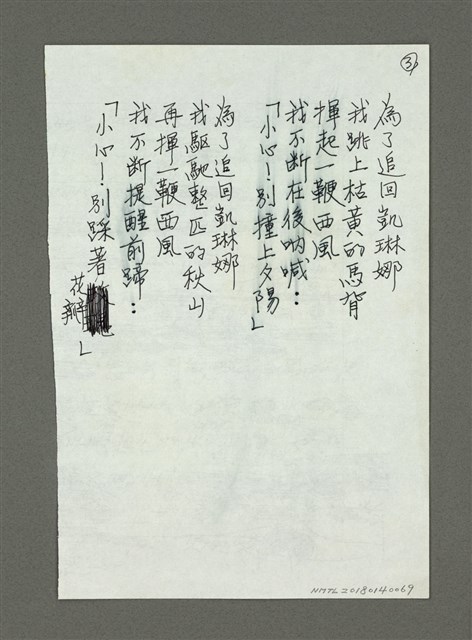 ③
為了追回凱琳娜
我跳上枯黃的馬背
揮起一鞭西風
我不断在後吶喊：
「小心！別撞上夕陽」
為了追回凱琳娜
我驅馳整匹的秋山
再揮一鞭西風
我不断提醒前蹄：
「小心！別踩著花瓣」
NMTL20180140069